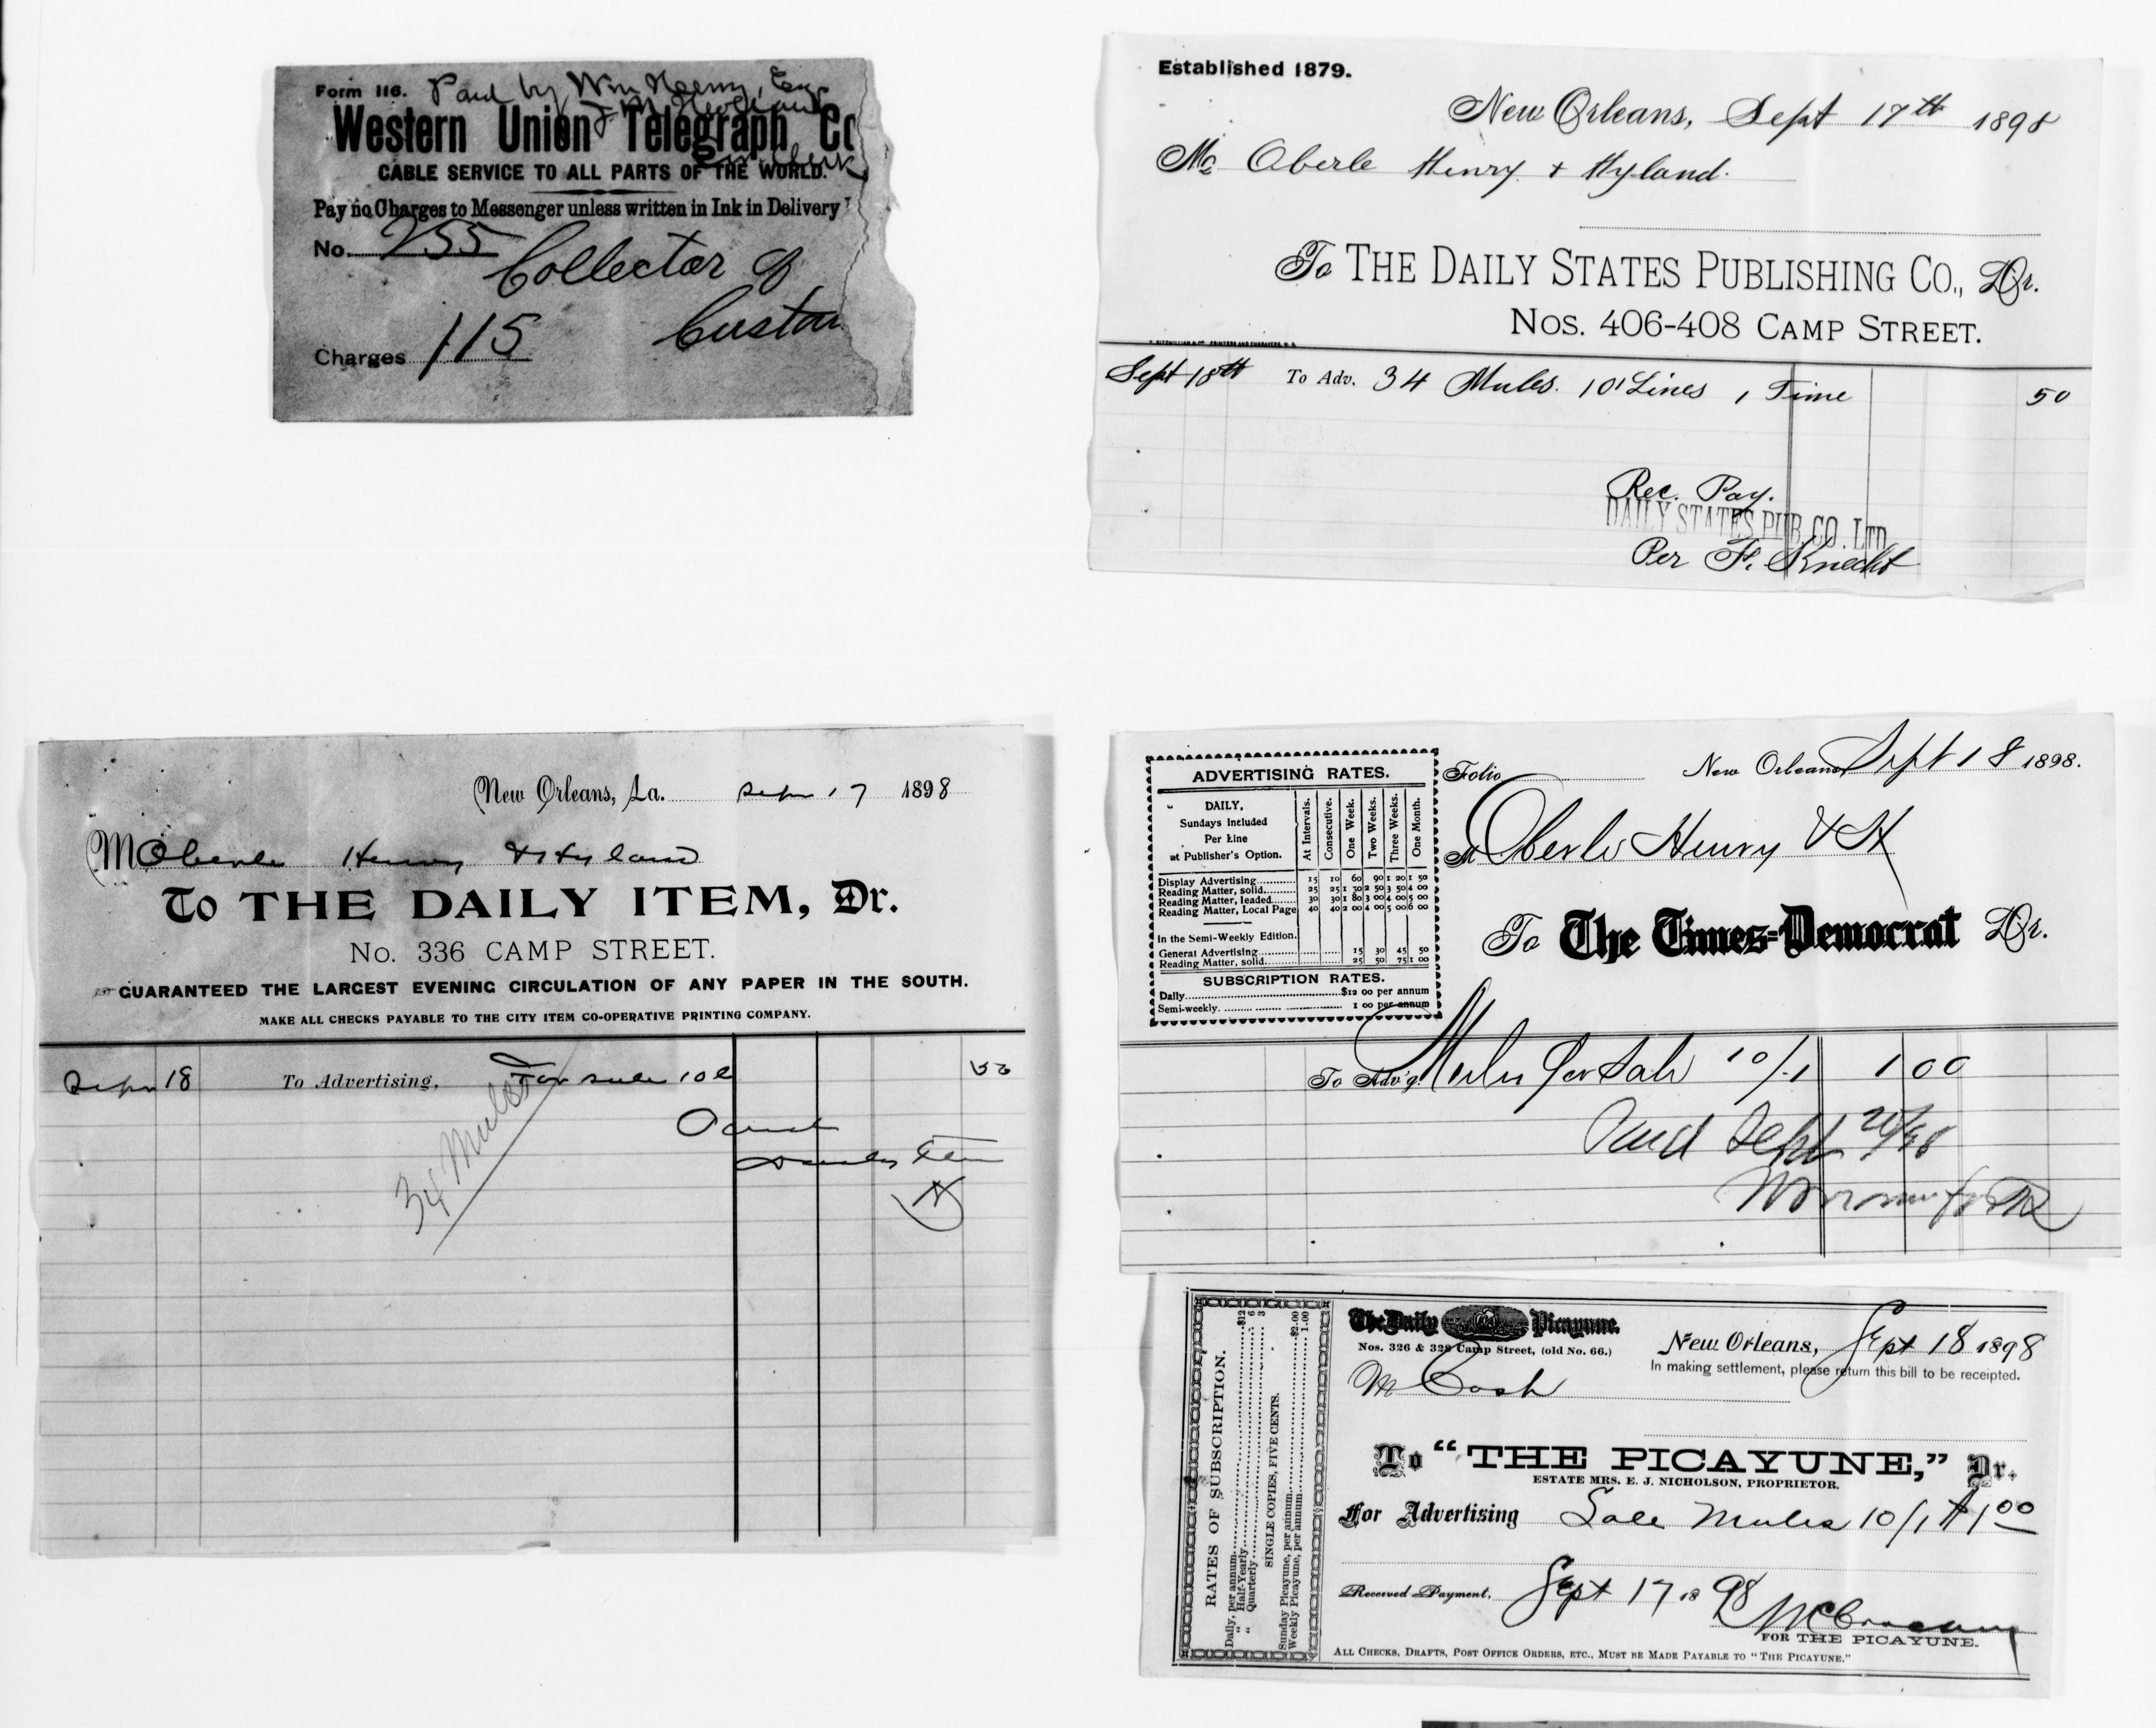 Form 116. Paid by Wm Henry, Esq
Western Union Telegraph Co
CABLE SERVICE TO ALL PARTS OF THE WORLD.
Clerk
Pay no Charges to Messenger unless written in Ink in Delivery
No. 255
Collector of
Custom
Charges 115
Established 1879.
New Orleans, Sept 17th 1898
Mr Aberle Henry & Hyland.
To THE DAILY STATES PUBLISHING CO., Dr.
NOS. 406-408 CAMP STREET.
Sept 18th To Adv. 34 Mules. 10 Lines 1 Time 50
Rec. Pay.
DAILY STATES PUB. CO. LTD
Per F. Knecht
New Orleans, La. Sept 17 1898
M Oberle Henry & Hyland
To THE DAILY ITEM, Dr.
No. 336 CAMP STREET.
GUARANTEED THE LARGEST EVENING CIRCULATION OF ANY PAPER IN THE SOUTH.
MAKE ALL CHECKS PAYABLE TO THE CITY ITEM CO-OPERATIVE PRINTING COMPANY.
Sept 18 To Advertising, For sale 10 l 50
34 Mules
Paid
Daily Item
ADVERTISING RATES.
DAILY,
Sundays Included
Per Line
at Publisher's Option.
At Intervals. Consecutive. One Week. Two Weeks. Three Weeks. One Month.
Display Advertising 15 10 60 90 1 20 1 50
Reading Matter, solid 25 25 1 50 2 50 3 50 4 00
Reading Matter, leaded 30 30 1 80 3 00 4 00 5 00
Reading Matter, Local Page 40 40 2 00 4 00 5 00 6 00
In the Semi-Weekly Edition.
General Advertising 15 30 45 50
Reading Matter, solid 25 50 75 1 00
SUBSCRIPTION RATES.
Daily $12 00 per annum
Semi-weekly. 1 00 per annum
Folio New Orleans Sept 18 1898.
M Oberle Henry & H
To The Times-Democrat Dr.
To Adv'g. Mules for Sale 10/1 1 00
Paid Sept 20/98
The Daily Picayune.
Nos. 326 & 328 Camp Street, (old No. 66.)
New Orleans, Sept 18 1898
In making settlement, please return this bill to be receipted.
M Cash
To "THE PICAYUNE," Dr.
ESTATE MRS. E. J. NICHOLSON, PROPRIETOR.
For Advertising Sale Mules 10/1 $1 00
Received Payment, Sept 17 1898
FOR THE PICAYUNE.
ALL CHECKS, DRAFTS, POST OFFICE ORDERS, ETC., MUST BE MADE PAYABLE TO "THE PICAYUNE."
RATES OF SUBSCRIPTION.
Daily, per annum $12
" Half-Yearly 6
" Quarterly 3
SINGLE COPIES, FIVE CENTS.
Sunday Picayune, per annum $2.00
Weekly Picayune, per annum 1.00